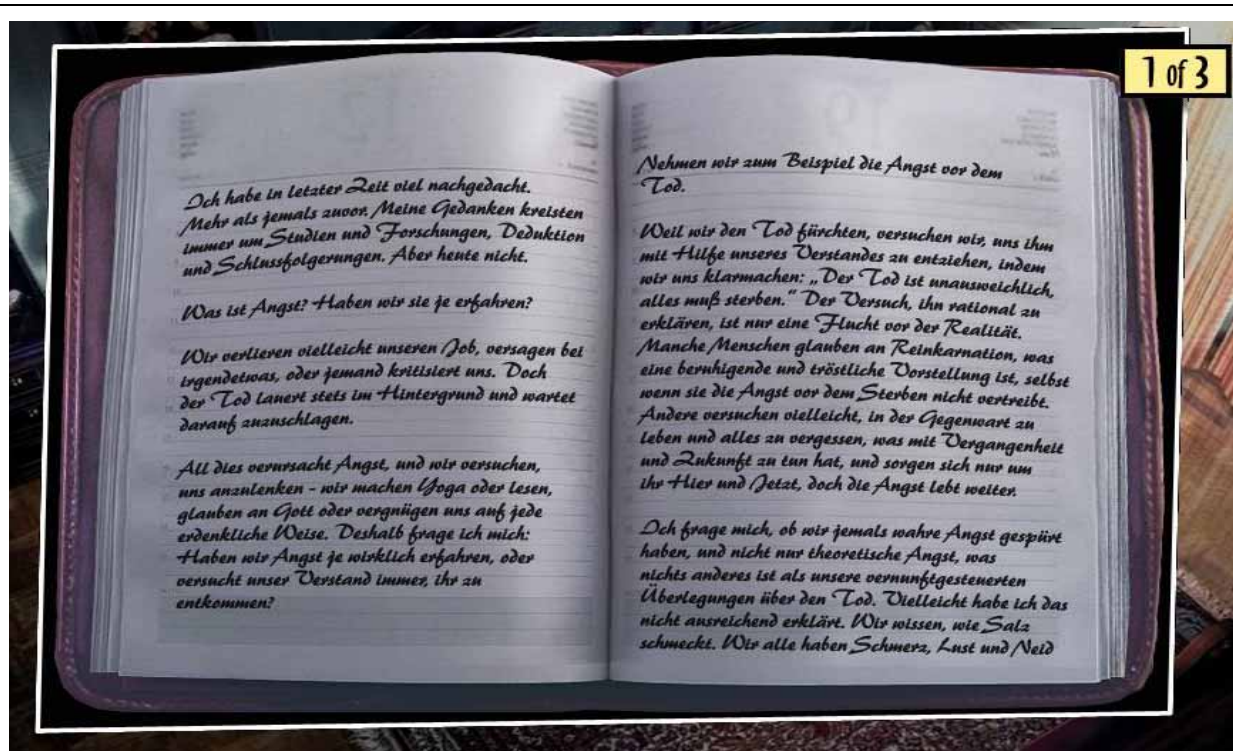 1 of 3
Ich habe in letzter Zeit viel nachgedacht.
Mehr als jemals zuvor. Meine Gedanken kreisten
immer um Studien und Forschungen, Deduktion
und Schlussfolgerungen. Aber heute nicht.
Was ist Angst? Haben wir sie je erfahren?
Wir verlieren vielleicht unseren Job, versagen bei
irgendetwas, oder jemand kritisiert uns. Doch
der Tod lauert stets im Hintergrund und wartet
darauf zuzuschlagen.
All dies verursacht Angst, und wir versuchen,
uns anzulenken - wir machen Yoga oder lesen,
glauben an Gott oder vergnügen uns auf jede
erdenkliche Weise. Deshalb frage ich mich:
Haben wir Angst je wirklich erfahren, oder
versucht unser Verstand immer, ihr zu
entkommen?
Nehmen wir zum Beispiel die Angst vor dem
Tod.
Weil wir den Tod fürchten, versuchen wir, uns ihm
mit Hilfe unseres Verstandes zu entziehen, indem
wir uns klarmachen: „Der Tod ist unausweichlich,
alles muß sterben.“ Der Versuch, ihn rational zu
erklären, ist nur eine Flucht vor der Realität.
Manche Menschen glauben an Reinkarnation, was
eine beruhigende und tröstliche Vorstellung ist, selbst
wenn sie die Angst vor dem Sterben nicht vertreibt.
Andere versuchen vielleicht, in der Gegenwart zu
leben und alles zu vergessen, was mit Vergangenheit
und Zukunft zu tun hat, und sorgen sich nur um
ihr Hier und Jetzt, doch die Angst lebt weiter.
Ich frage mich, ob wir jemals wahre Angst gespürt
haben, und nicht nur theoretische Angst, was
nichts anderes ist als unsere vernunftgesteuerten
Überlegungen über den Tod. Vielleicht habe ich das
nicht ausreichend erklärt. Wir wissen, wie Salz
schmeckt. Wir alle haben Schmerz, Lust und Neid